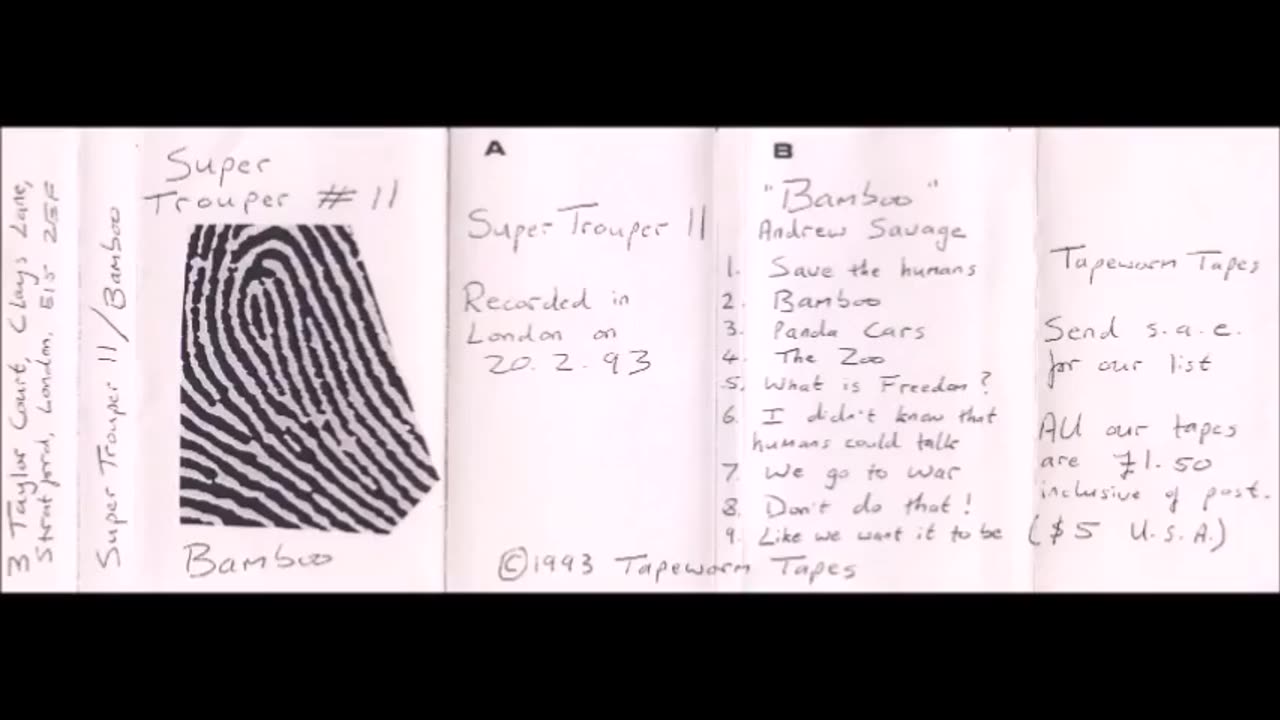 3 Taylor Court, Clays Lane,
Stratford, London. E15 2SF
Super Trouper 11/Bamboo
Super
Trouper #11
Bamboo
A
Super Trouper 11
Recorded in
London on
20.2.93
B
"Bamboo"
Andrew Savage
1. Save the humans
2. Bamboo
3. Panda Cars
4. The Zoo
5. What is Freedom?
6. I didn't know that
humans could talk
7. We go to war
8. Don't do that!
9. Like we want it to be
©1993 Tapeworm Tapes
Tapeworm Tapes
Send s.a.e.
for our list
All our tapes
are £1.50
inclusive of post.
($5 U.S.A.)